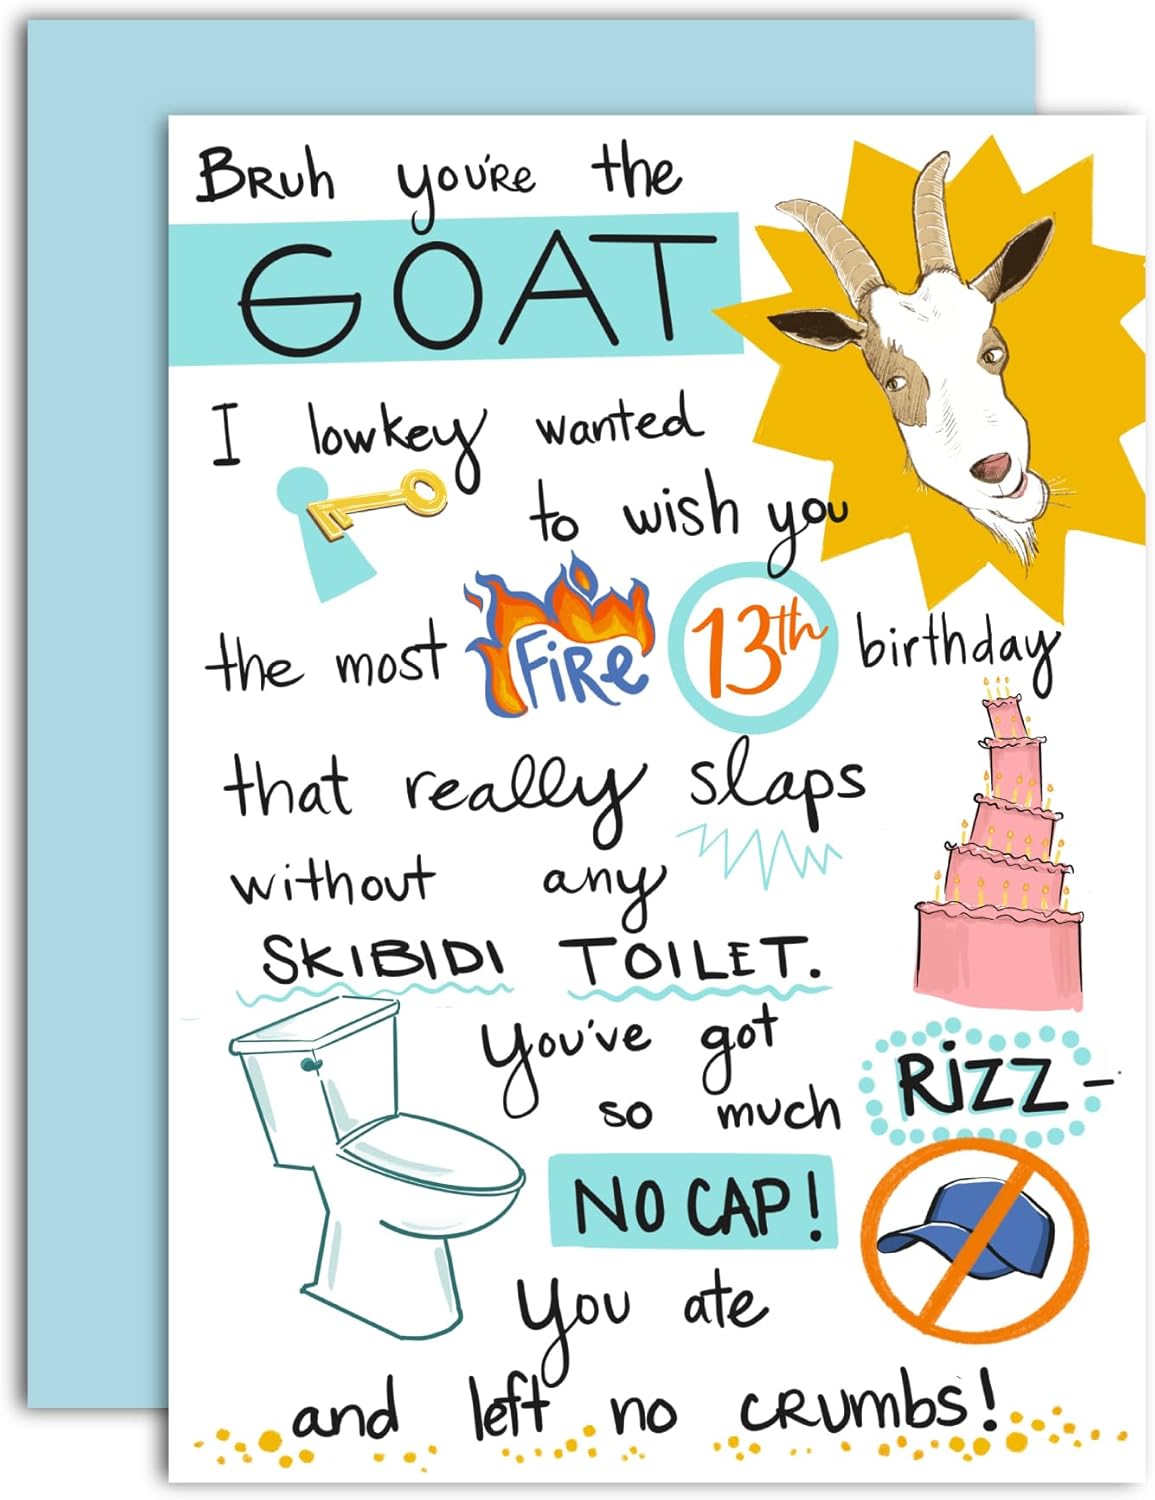 Bruh you're the
GOAT
I lowkey wanted
to wish you
the most FiRe 13th birthday
that really slaps
without any
SKIBIDI TOILET.
You've got
so much RiZZ –
NO CAP!
You ate
and left no CRUmbs!